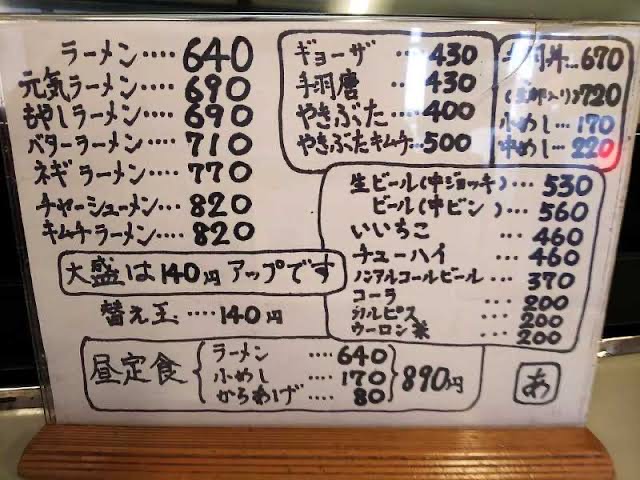 ラーメン････640
元気ラーメン･･･690
もやしラーメン･･･690
バターラーメン･･･710
ネギラーメン･･･770
チャーシューメン･･･820
キムチラーメン･･･820
大盛は140円アップです
替え玉････140円
ギョーザ････430
手羽唐････430
やきぶた････400
やきぶたキムチ･･･500
丼･･･670
720
小めし･･･170
中めし･･･220
生ビール(中ジョッキ)･･･530
ビール(中ビン)･･･560
いいちこ･･･460
チューハイ･･･460
ノンアルコールビール･･･370
コーラ･･･200
カルピス･･･200
ウーロン茶･･･200
昼定食
ラーメン････640
小めし････170
からあげ････80
890円
あ